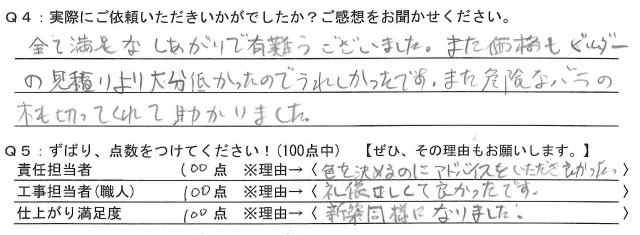 Q4：実際にご依頼いただきいかがでしたか？ご感想をお聞かせください。
全て満足なしあがりで有難うございました。また価格もビルダー
の見積りより大分低かったのでうれしかったです。また危険なバラの
木も切ってくれて助かりました。
Q5：ずばり、点数をつけてください！(100点中)　【ぜひ、その理由もお願いします。】
責任担当者　100点　※理由→〈色を決めるのにアドバイスをいただき良かった。〉
工事担当者(職人)　100点　※理由→〈礼儀正しくて良かったです。〉
仕上がり満足度　100点　※理由→〈新築同様になりました。〉